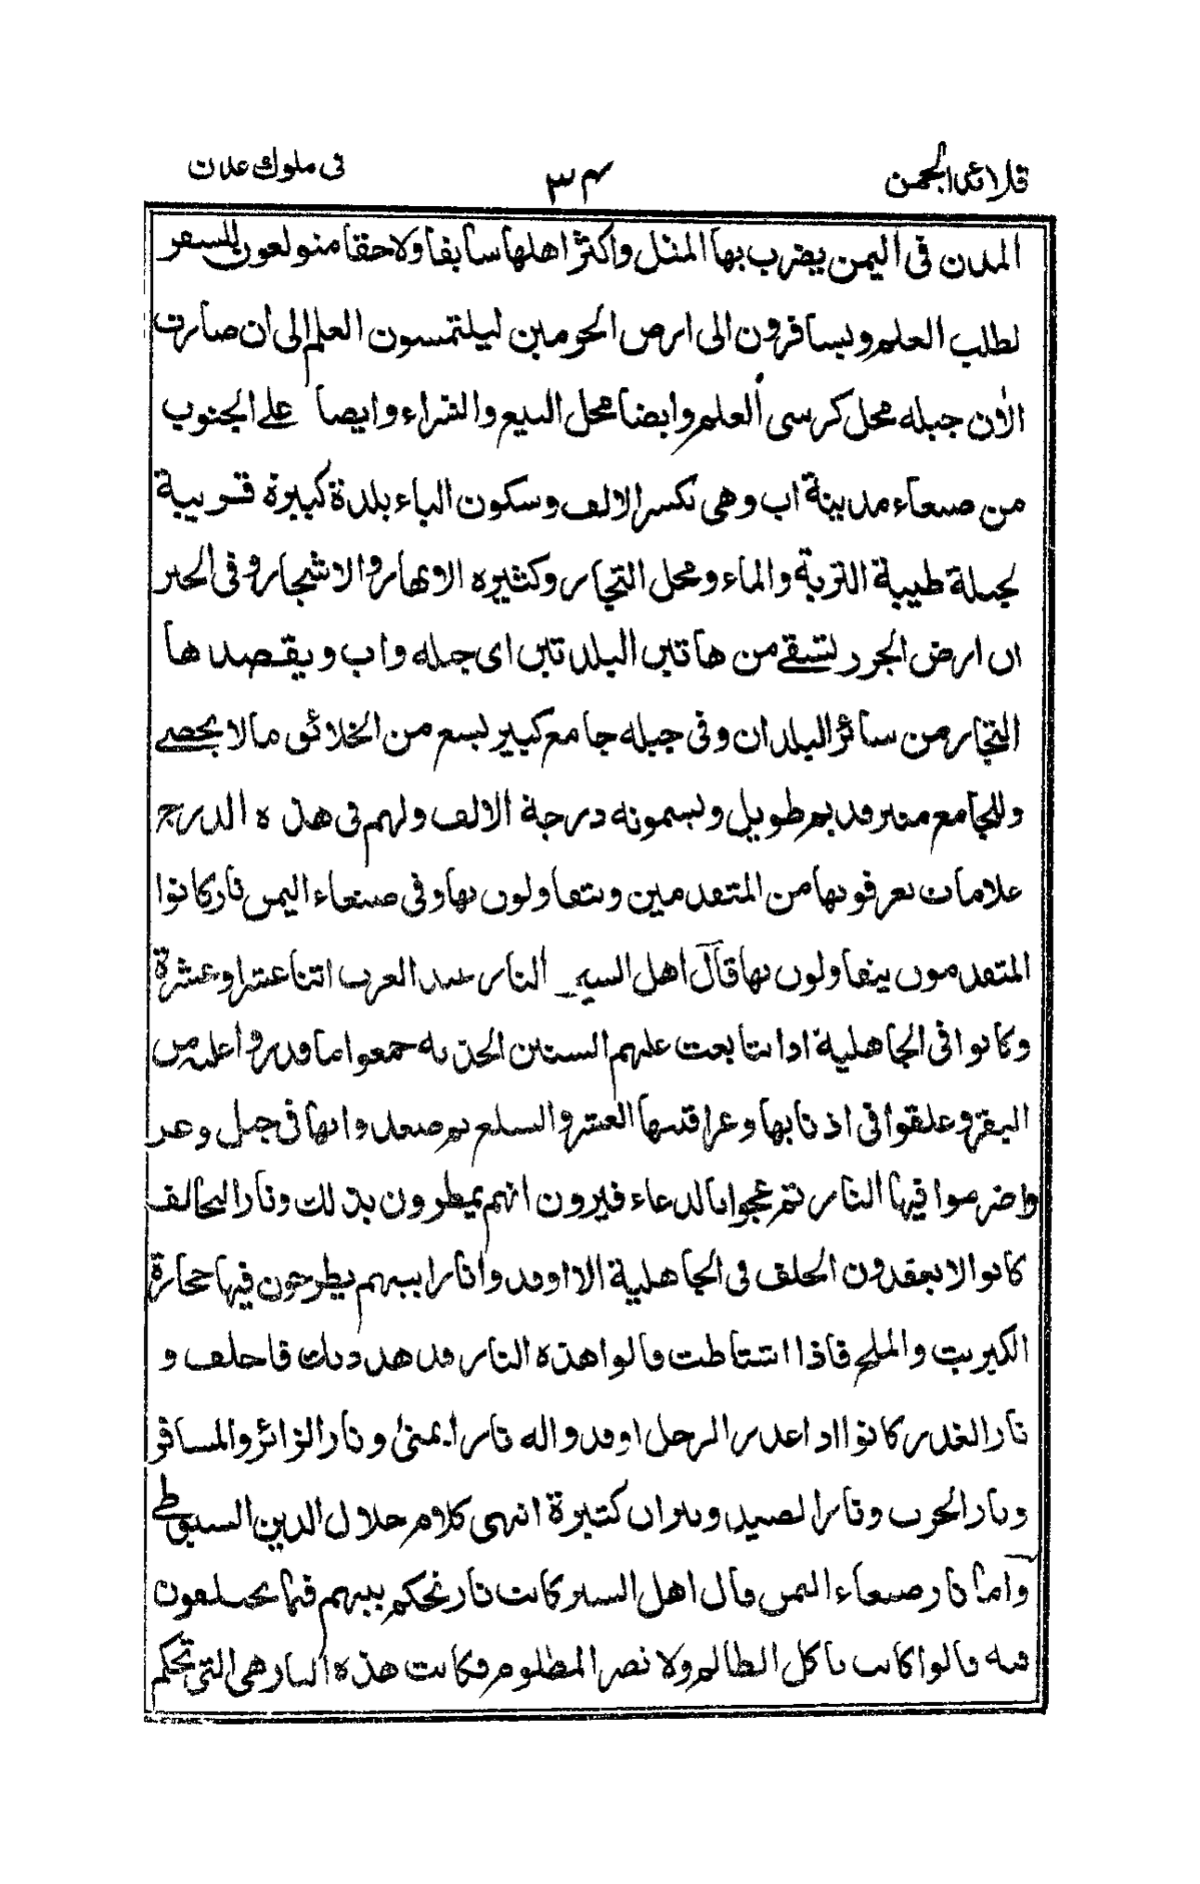 قلائد الجمن ٣٤ فى ملوك عدن
المدن فى اليمن يضرب بها المثل واكثر اهلها سابقا ولاحقا متولعون للسفر
لطلب العلم ويسافرون الى ارض الحرمين ليلتمسون العلم الى ان صارت
الاٰن جبله محل كرسى العلم وايضا محل البيع والشراء وايضا على الجنوب
من صنعاء مدينة اب وهى بكسر الالف وسكون الباء بلدة كبيرة قريبة
لجبلة طيبة التربة والماء ومحل التجار وكثيره الانهار والاشجار وفى الخبر
ان ارض الجرر لتسقے من هاتين البلدتين اى جبله واب ويقصدها
التجار من سائر البلدان وفى جبله جامع كبير يسع من الخلائق مالا يحصے
وللجامع منبر قديم طويل ويسمونه درجة الالف ولهم فى هذه الدرج
علامات يعرفونها من المتقدمين ويتفاولون بها وفى صنعاء اليمن نار كانوا
المتقدمون يتفاولون بها قال اهل السير النار عند العرب اثنا عشر او عشرة
وكانوا فى الجاهلية اذا تتابعت عليهم السنين الجدبه جمعوا ما قدروا عليه من
البقر وعلقوا فى اذنابها وعراقيبها العشر والسلع ثم صعدوا بها فى جبل وعر
واضرموا فيها النار ثم عجوا بالدعاء فيرون انهم يمطرون بذلك ونار التحالف
كانوا لا يعقدون الحلف فى الجاهلية الا اوقدوا نارا بينهم يطرحون فيها حجارة
الكبريت والملح فاذا اشتاطت قالوا هذه النار قد هددتك فاحلف و
نار الغدر كانوا اذا غدر الرجل اوقدوا له نارا بمنىٰ ونار الزائر والمسافر
ونار الحرب ونار الصيد ونيران كثيرة انتهى كلام جلال الدين السيوطے
واما نار صنعاء اليمن قال اهل السير كانت نار تحكم بينهم فيما يختلفون
فيه قالوا كانت تاكل الظالم ولا تضر المظلوم فكانت هذه النار هى التى تحكم